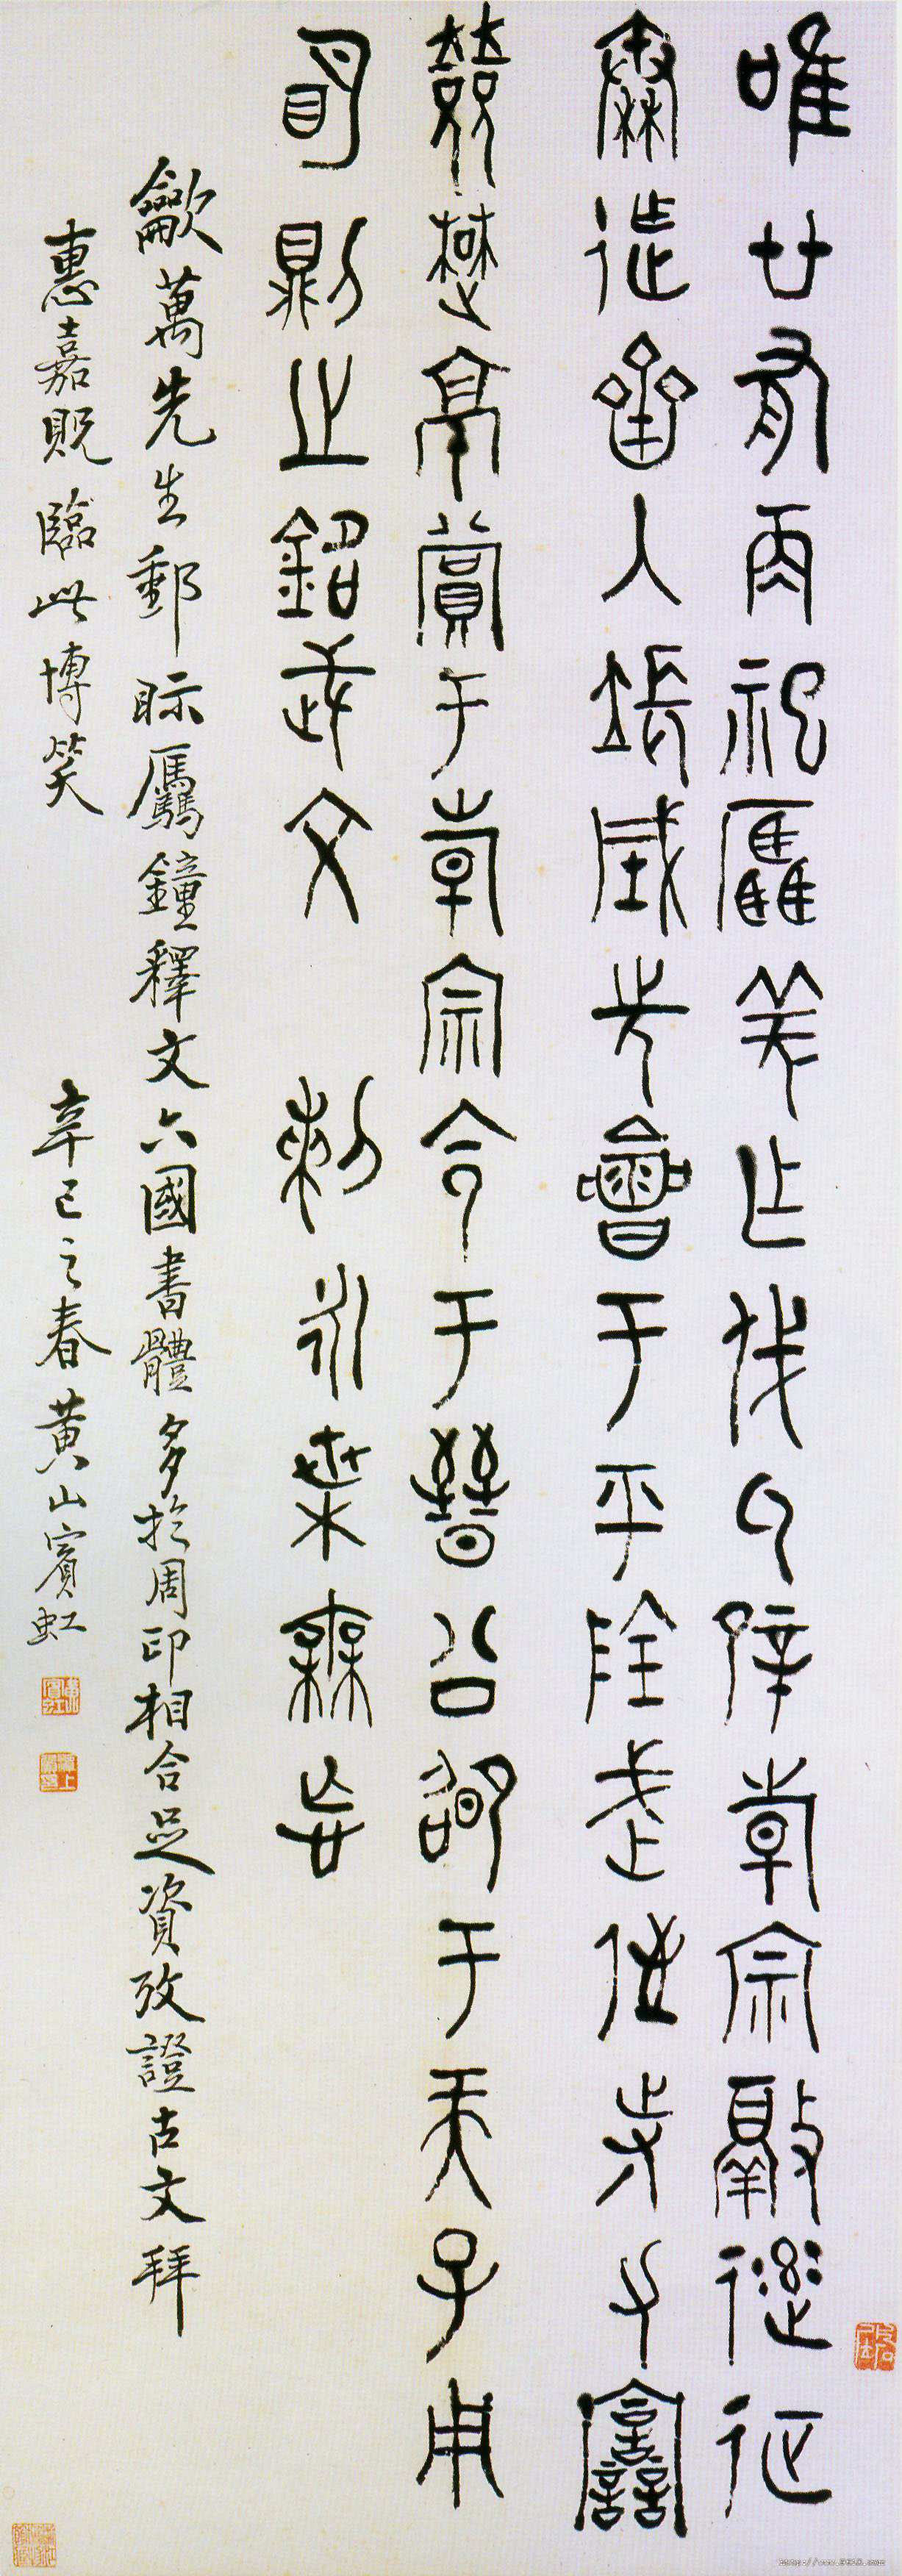 唯廿又再祀驫羌乍戎氒辟韓宗敲逹征
秦迮齊入長城先會于平陰武侄寺力譶
敓楚京賞于韓宗令于晉公卲于天子用
明則之銘武文 剌永枼
龡萬先生郵眎驫鐘釋文六國書體多於周印相合足資攷證古文拜
惠嘉貺臨此博笑 辛巳之春黃山賓虹